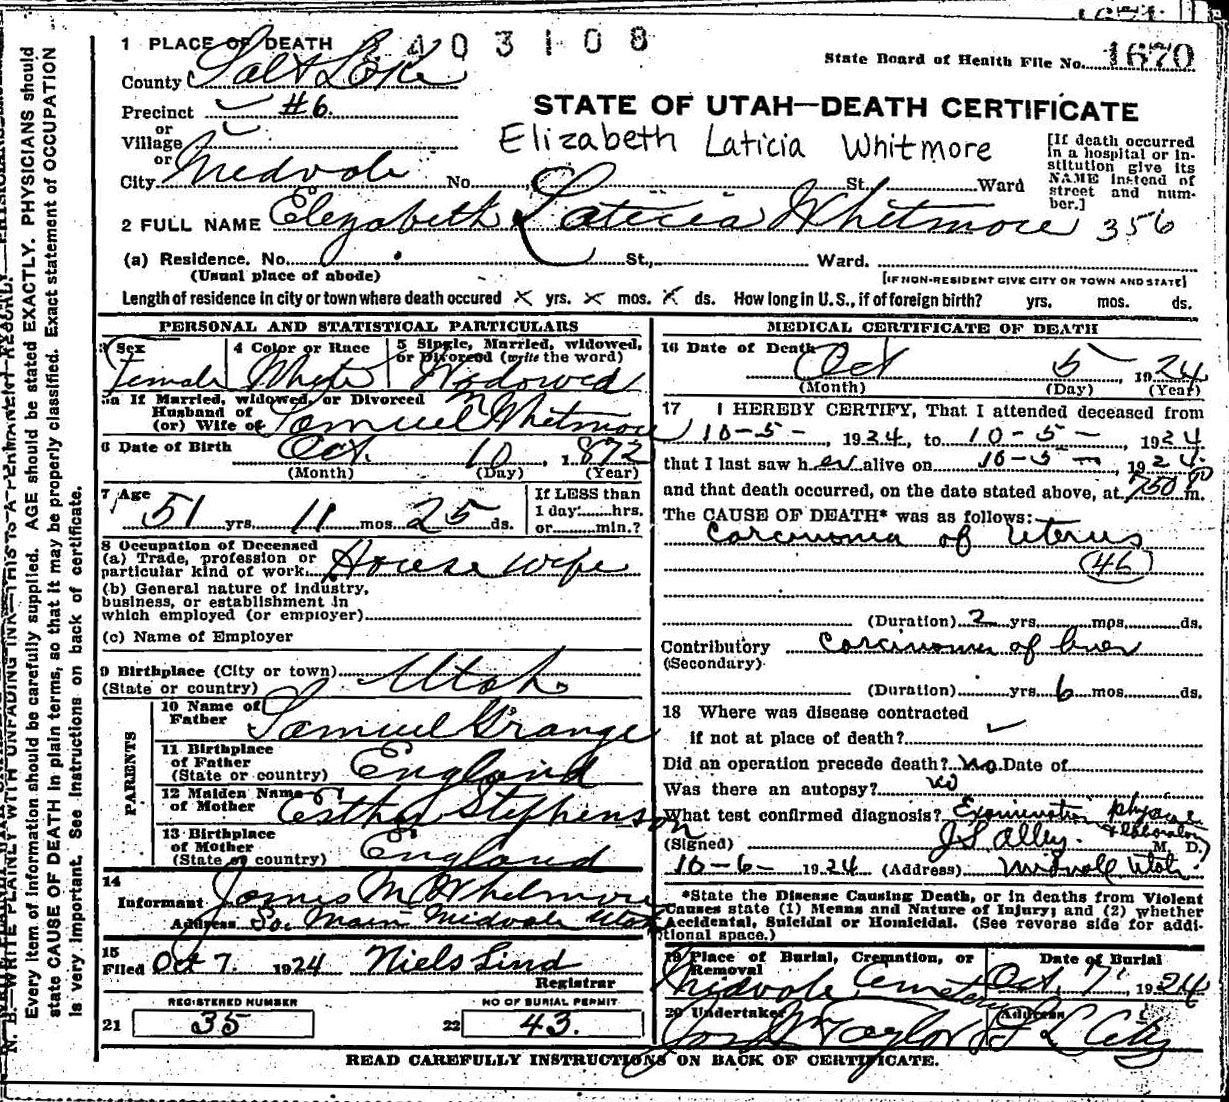 1 PLACE OF DEATH 2403108
State Board of Health File No. 1670
County Salt Lake
Precinct #6.
or
Village
or
City Midvale No. St. Ward
STATE OF UTAH—DEATH CERTIFICATE
Elizabeth Laticia Whitmore
[If death occurred in a hospital or institution give its NAME instead of street and number.]
2 FULL NAME Elizabeth Laticia Whitmore 356
(a) Residence. No. St., Ward.
(Usual place of abode) [IF NON-RESIDENT GIVE CITY OR TOWN AND STATE]
Length of residence in city or town where death occured x yrs. x mos. x ds. How long in U.S., if of foreign birth? yrs. mos. ds.
PERSONAL AND STATISTICAL PARTICULARS
3 Sex Female
4 Color or Race White
5 Single, Married, widowed, or Divorced (write the word) Widowed
5a If Married, widowed, or Divorced
Husband of
(or) Wife of Samuel Whitmore
6 Date of Birth Oct. 10, 1872
(Month) (Day) (Year)
7 Age 51 yrs. 11 mos. 25 ds.
If LESS than 1 day: hrs. or min.?
8 Occupation of Deceased
(a) Trade, profession or particular kind of work. House wife
(b) General nature of industry, business, or establishment in which employed (or employer)
(c) Name of Employer
9 Birthplace (City or town)
(State or country) Utah
PARENTS
10 Name of Father Samuel Grange
11 Birthplace of Father (State or country) England
12 Maiden Name of Mother Esther Stephenson
13 Birthplace of Mother (State or country) England
14
Informant James M Whitmore
Address So. Main Midvale Utah
15
Filed Oct 7. 1924 Niels Lind
Registrar
REGISTERED NUMBER NO OF BURIAL PERMIT
21 35 22 43.
MEDICAL CERTIFICATE OF DEATH
16 Date of Death Oct 5 1924
(Month) (Day) (Year)
17 I HEREBY CERTIFY, That I attended deceased from
10-5-, 1924, to 10-5-, 1924
that I last saw her alive on 10-5-, 1924.
and that death occurred, on the date stated above, at 750 P m.
The CAUSE OF DEATH* was as follows:
Carcinoma of Uterus
(46)
(Duration) 2 yrs. mos. ds.
Contributory Carcinoma of liver
(Secondary)
(Duration) yrs. 6 mos. ds.
18 Where was disease contracted
if not at place of death?
Did an operation precede death? No. Date of
Was there an autopsy? No
What test confirmed diagnosis? Examination physical & laboratory
(Signed) J S Alley. M. D.
10-6-, 1924 (Address) Midvale Utah
*State the Disease Causing Death, or in deaths from Violent
Causes state (1) Means and Nature of Injury; and (2) whether
Accidental, Suicidal or Homicidal. (See reverse side for additional space.)
19 Place of Burial, Cremation, or Removal Midvale Cemetery
Date of Burial Oct 7, 1924
20 Undertaker Taylor Address S L City
READ CAREFULLY INSTRUCTIONS ON BACK OF CERTIFICATE.
N. B.—WRITE PLAINLY WITH UNFADING INK—THIS IS A PERMANENT RECORD.
Every item of information should be carefully supplied. AGE should be stated EXACTLY. PHYSICIANS should
state CAUSE OF DEATH in plain terms, so that it may be properly classified. Exact statement of OCCUPATION
is very important. See instructions on back of certificate.